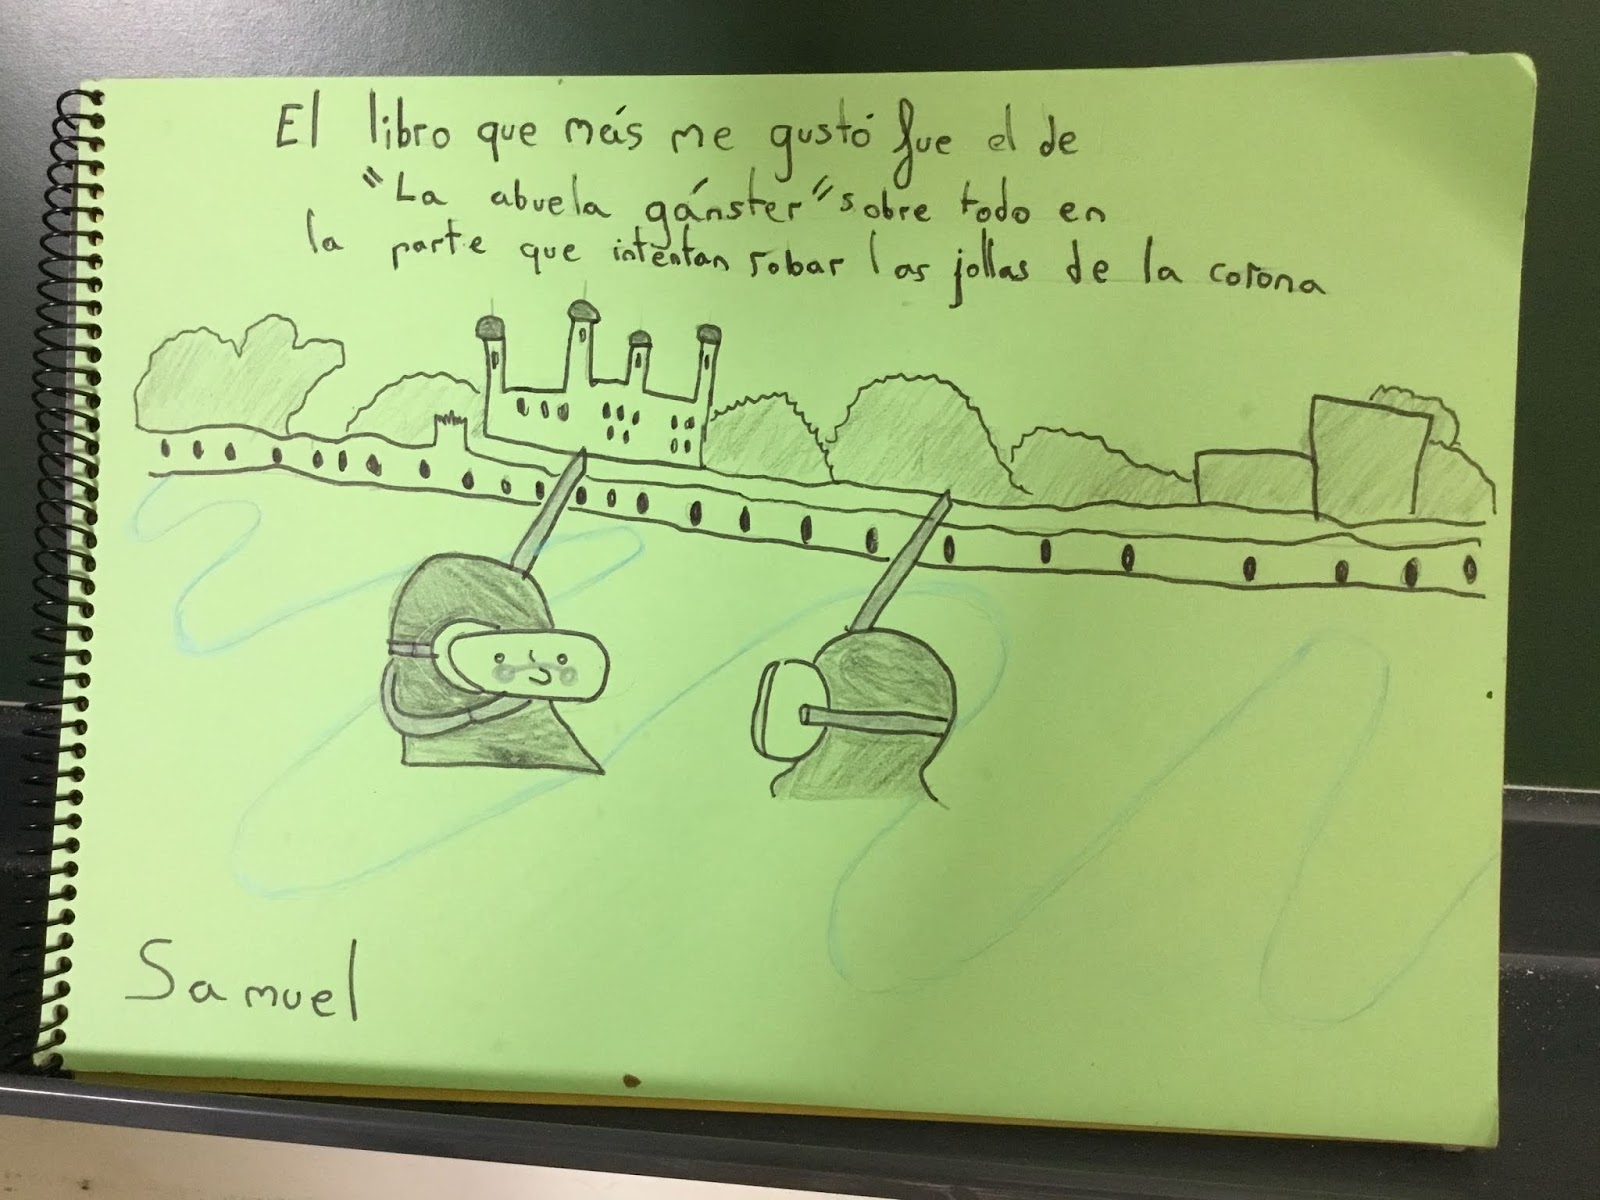 El libro que más me gustó fue el de
"La abuela gánster" sobre todo en
la parte que intentan robar las jollas de la corona
Samuel